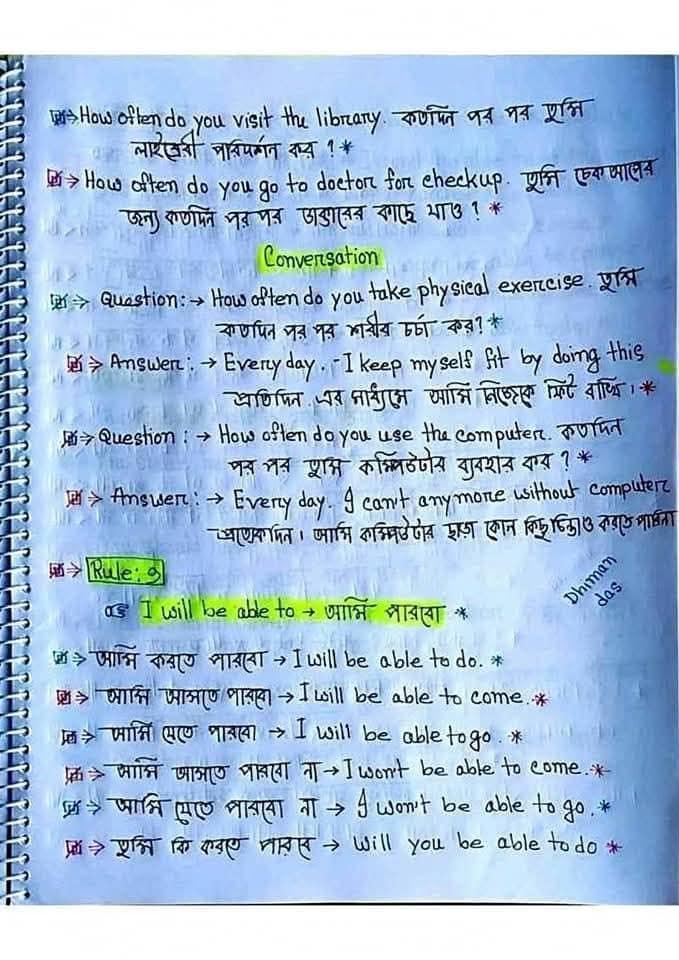 → How often do you visit the library. কতদিন পর পর তুমি
লাইব্রেরী পরিদর্শন কর ? *
→ How often do you go to doctor for checkup. তুমি চেক আপের
জন্য কতদিন পর পর ডাক্তারের কাছে যাও ? *
Conversation
→ Question: → How often do you take physical exercise. তুমি
কতদিন পর পর শরীর চর্চা কর? *
→ Answer: → Every day. I keep myself fit by doing this
প্রতিদিন এর মাধ্যমে আমি নিজেকে ফিট রাখি। *
→ Question : → How often do you use the computer. কতদিন
পর পর তুমি কম্পিউটার ব্যবহার কর ? *
→ Answer: → Every day. I can't anymore without computer
প্রত্যেকদিন। আমি কম্পিউটার ছাড়া কোন কিছু চিন্তাও করতে পারিনা
Dhiman
das
→ Rule: 9
I will be able to → আমি পারবো *
→ আমি করতে পারবো → I will be able to do. *
→ আমি আসতে পারবো → I will be able to come. *
→ আমি যেতে পারবো → I will be able to go. *
→ আমি আসতে পারবো না → I won't be able to come. *
→ আমি যেতে পারবো না → I won't be able to go. *
→ তুমি কি করতে পারবে → will you be able to do *